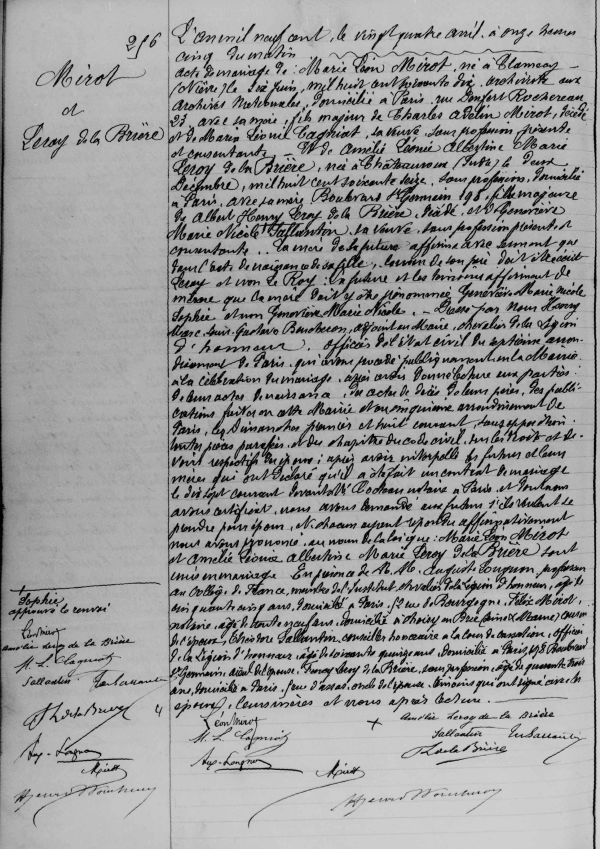 256
Mirot
et
Leroy de la Brière
L'an mil neuf cent, le vingt quatre avril, à onze heures
cinq du matin
acte de mariage de : Marie Léon Mirot, né à Clamecy
(Nièvre) le dix juin, mil huit cent soixante dix, archiviste aux
Archives Nationales, domicilié à Paris, rue Denfert Rochereau
23, avec sa mère, fils majeur de Charles Adelin Mirot, décédé
et de Marie Léonie Cagniat, sa veuve, sans profession, présente
et consentante. Et de Amélie Léonie Albertine Marie
Leroy de la Brière, née à Châteauroux (Indre) le deux
Décembre, mil huit cent soixante seize, sans profession, domiciliée
à Paris, avec sa mère Boulevard St Germain 198, fille majeure
de Albert Henry Leroy de la Brière, décédé, et de Geneviève
Marie Nicole Sallantin, sa veuve, sans profession, présente et
consentante. La mère de la future affirme avec serment que
dans l'acte de naissance de sa fille, le nom de son père doit être écrit
Leroy et non Le Roy ; la future et les témoins affirment de
même que la mère doit y être prénommée Geneviève Marie Nicole
Sophie et non Geneviève Marie Nicole. Dressé par nous Henry
Marc Louis Gustave Bourheron, adjoint au Maire, chevalier de la Légion
d'honneur, officier de l'état civil du septième arron-
dissement de Paris, qui avons procédé publiquement en la Mairie
à la célébration du mariage, après avoir donné lecture aux parties :
de leurs actes de naissance, des actes de décès de leurs pères, des publi-
cations faites en cette Mairie et au cinquième arrondissement de
Paris, les Dimanches premier et huit courant sans opposition
toutes pièces paraphées, et du chapitre du code civil, sur les droits et de-
voirs respectifs des époux ; après avoir interpellé les futurs et leurs
mères qui ont déclaré qu'il a été fait un contrat de mariage
le dix sept courant devant notaire à Paris et dont nous
avons certificat, nous avons demandé aux futurs s'ils veulent se
prendre pour époux, et chacun ayant répondu affirmativement
nous avons prononcé, au nom de la loi que : Marie Léon Mirot
et Amélie Léonie Albertine Marie Leroy de la Brière sont
unis en mariage. En présence de M.M. Auguste Longnon, professeur
au Collège de France, membre de l'Institut, chevalier de la Légion d'honneur, âgé de
cinquante cinq ans, domicilié à Paris, 52 rue de Bourgogne, Félix Mirot,
notaire, âgé de trente neuf ans, domicilié à Choisy en Brie (Seine et Marne) cousin
de l'époux, Théodore Sallantin, conseiller honoraire à la cour de cassation, officier
de la Légion d'honneur, âgé de soixante quinze ans, domicilié à Paris, 198 Boulevard
St Germain, aïeul de l'épouse, Leroy de la Brière, sans profession, âgé de quarante trois
ans, domicilié à Paris, rue d'Assas, oncle de l'épouse. témoins qui ont signé avec les
époux, leurs mères et nous après lecture.
Sophie
approuvé le renvoi
Léon Mirot
Amélie Leroy de la Brière
M. L. Cagniat
Sallantin
LdelaBrière
Aug. Longnon
Mirot
Léon Mirot
Amélie Leroy de la Brière
M. L. Cagniat
Sallantin
LdelaBrière
Aug. Longnon
Mirot